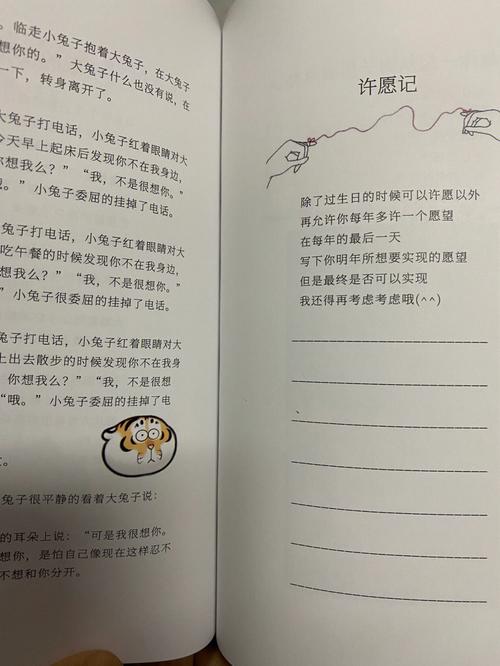 。临走小兔子抱着大兔子，在大兔子
想你的。”大兔子什么也没有说，在
一下，转身离开了。
大兔子打电话，小兔子红着眼睛对大
今天早上起床后发现你不在我身边，
你想我么？”“我，不是很想你。”
哦。”小兔子委屈的挂掉了电话。
子打电话，小兔子红着眼睛对大
吃午餐的时候发现你不在我身边，
想我么？”“我，不是很想你。”
”小兔子很委屈的挂掉了电话。
子打电话，小兔子红着眼睛对大
上出去散步的时候发现你不在我身
，你想我么？”“我，不是很想
“哦。”小兔子委屈的挂掉了电
。
兔子很平静的看着大兔子说：
的耳朵上说：“可是我很想你。
想你，是怕自己像现在这样忍不
不想和你分开。
许愿记
除了过生日的时候可以许愿以外
再允许你每年多许一个愿望
在每年的最后一天
写下你明年所想要实现的愿望
但是最终是否可以实现
我还得再考虑考虑哦(^^)